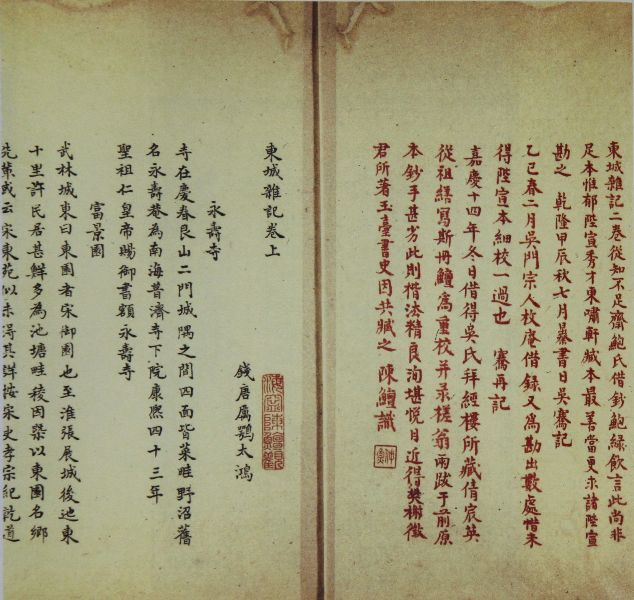 東城雜記二卷從知不足齋鮑氏借鈔鮑綠飲言此尚非
足本惟郁陛宣秀才東嘯軒藏本最善當更求諸陛宣
勘之 乾隆甲辰秋七月暴書日吳騫記
乙巳春二月吳門宗人枚庵借錄又為勘出數處惜未
得陛宣本細校一過也 騫再記
嘉慶十四年冬日借得吳氏拜經樓所藏倩宸英
從祖繕寫斯冊鱣寓重校并录槎翁兩跋于前原
本鈔手甚劣此則楷法精良洵堪悅目近得樊榭徵
君所著玉臺書史因共藏之 陳鱣識
仲魚
東城雜記卷上
錢唐厲鶚太鴻
海寧陳鱣觀
永壽寺
寺在慶春艮山二門城隅之間四面皆菜畦野沼舊
名永壽菴為南海普濟寺下院康熙四十三年
聖祖仁皇帝賜御書額永壽寺
富景園
武林城東曰東園者宋御園也至淮張展城後迤東
十里許民居甚鮮多為池塘畦稜因槩以東園名鄉
先輩或云宋東苑似未得其詳按宋史孝宗紀乾道